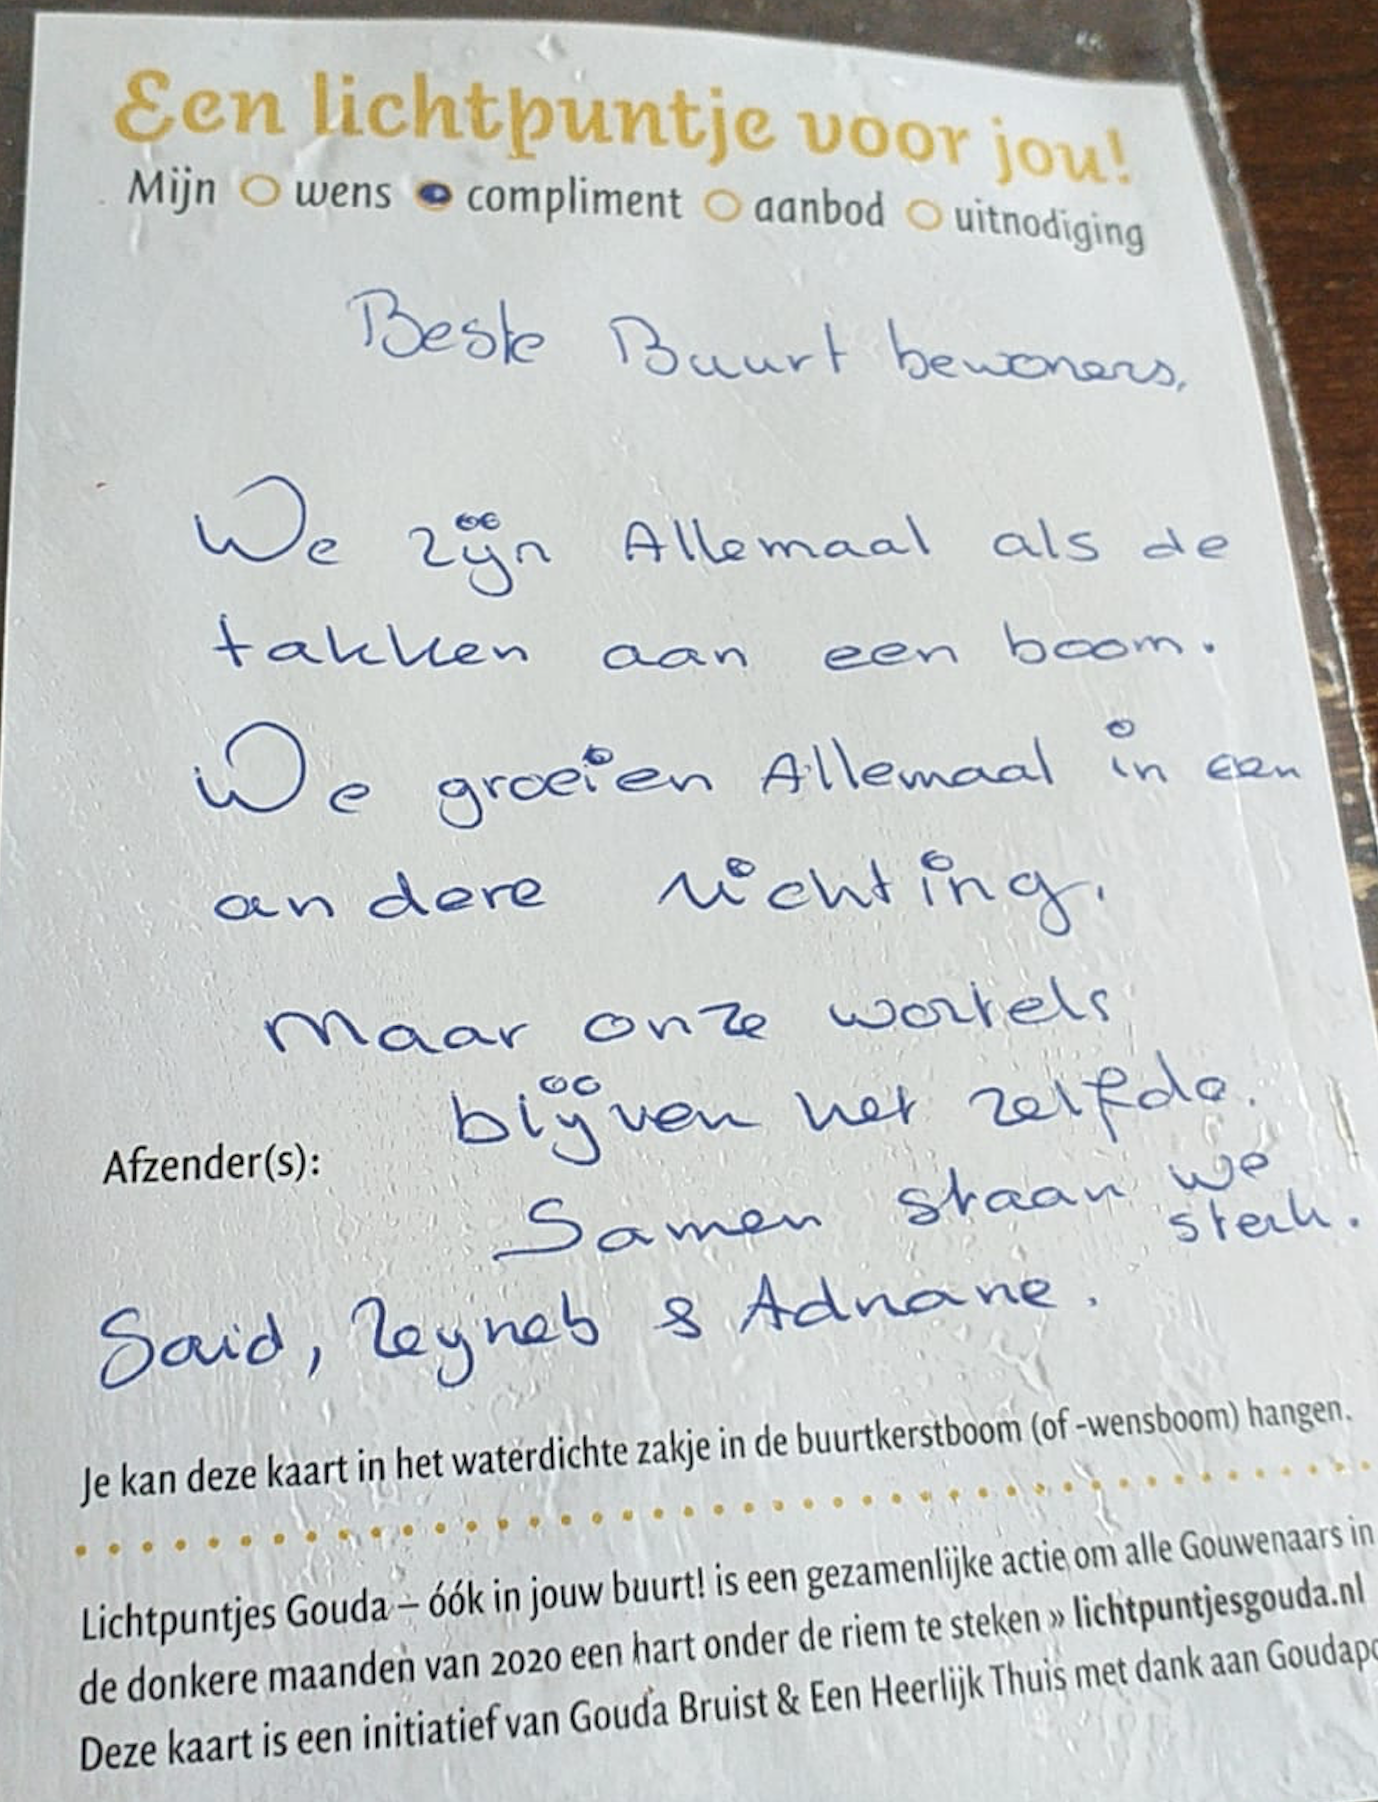 Een lichtpuntje voor jou!
Mijn wens compliment aanbod uitnodiging
Beste Buurt bewoners,
We zijn Allemaal als de
takken aan een boom.
We groeien Allemaal in een
an dere richting.
Maar onze wortels
blijven het zelfde.
Afzender(s):
Samen staan we
sterk.
Said, Zeyneb & Adnane.
Je kan deze kaart in het waterdichte zakje in de buurtkerstboom (of -wensboom) hangen.
Lichtpuntjes Gouda – óók in jouw buurt! is een gezamenlijke actie om alle Gouwenaars in
de donkere maanden van 2020 een hart onder de riem te steken » lichtpuntjesgouda.nl
Deze kaart is een initiatief van Gouda Bruist & Een Heerlijk Thuis met dank aan